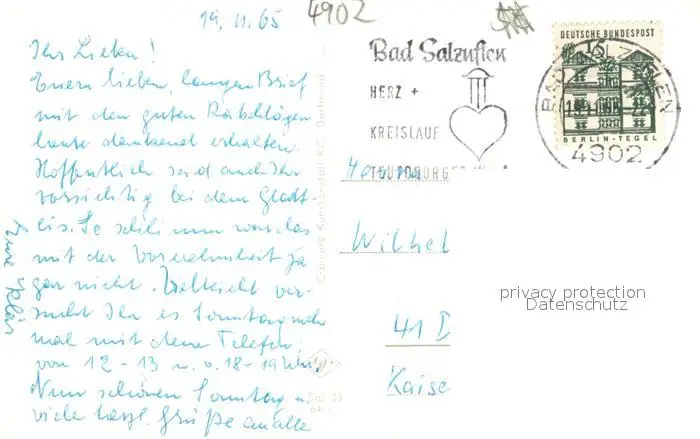 19.11.65
4902
Ihr Lieben!
Euern lieben, langen Brief
mit den guten Ratschlägen
heute dankend erhalten.
Hoffentlich seid auch Ihr
vorsichtig bei dem Glatt-
eis. So schlimm war das
mit der Vornehmheit ja
gar nicht. Vielleicht ver-
sucht Ihr es Sonntag noch
mal mit dem Telefon
von 12 - 13 u. v. 18 - 19 Uhr.
Nun schönen Sonntag u.
viele herzl. Grüße an alle
Eure Klär
Cramers Kunstanstalt KG, Dortmund
Bad Salzuflen
HERZ +
KREISLAUF
TEUTOBURGER
DEUTSCHE BUNDESPOST
15
BERLIN-TEGEL
4902
Wilhel
41 D
Kaise
privacy protection
Datenschutz